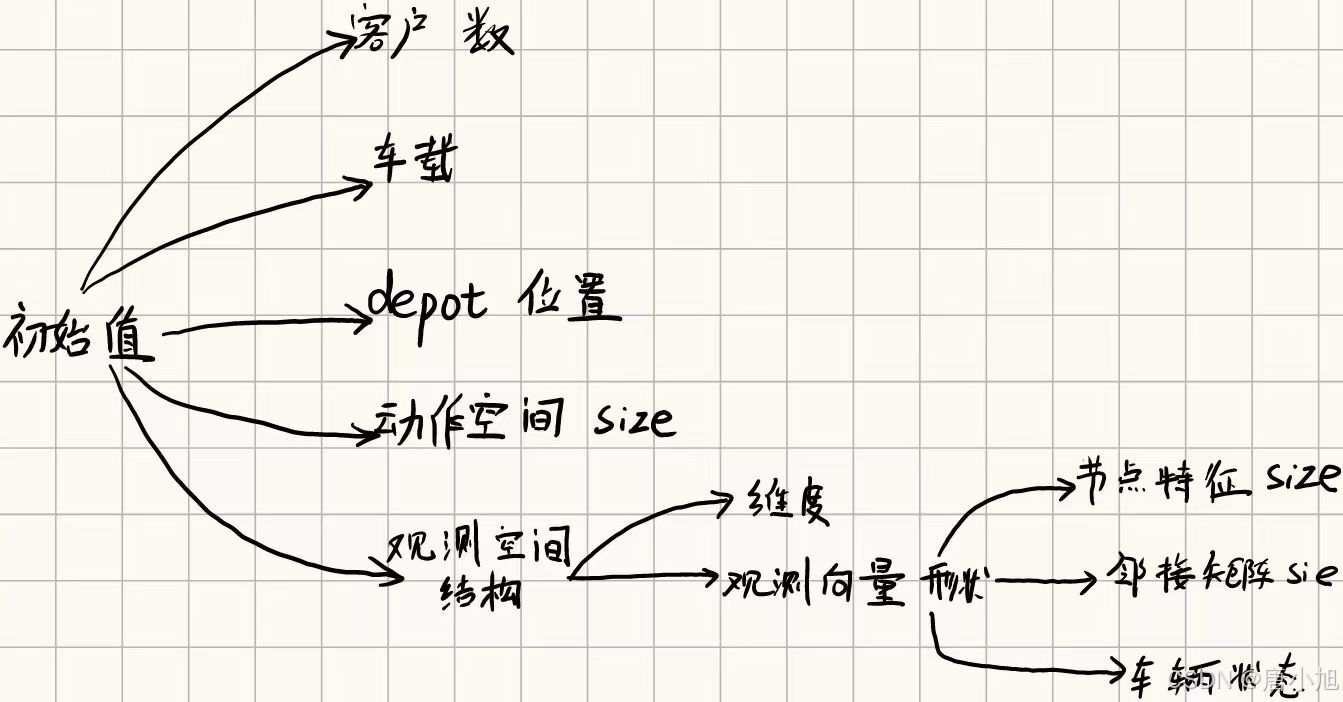 客户 数
车载
depot 位置
初始值
动作空间 size
观测空间
结构
维度
观测向量 形状
节点特征 size
邻接矩阵 sie
车辆状态
CSDN @唐小旭